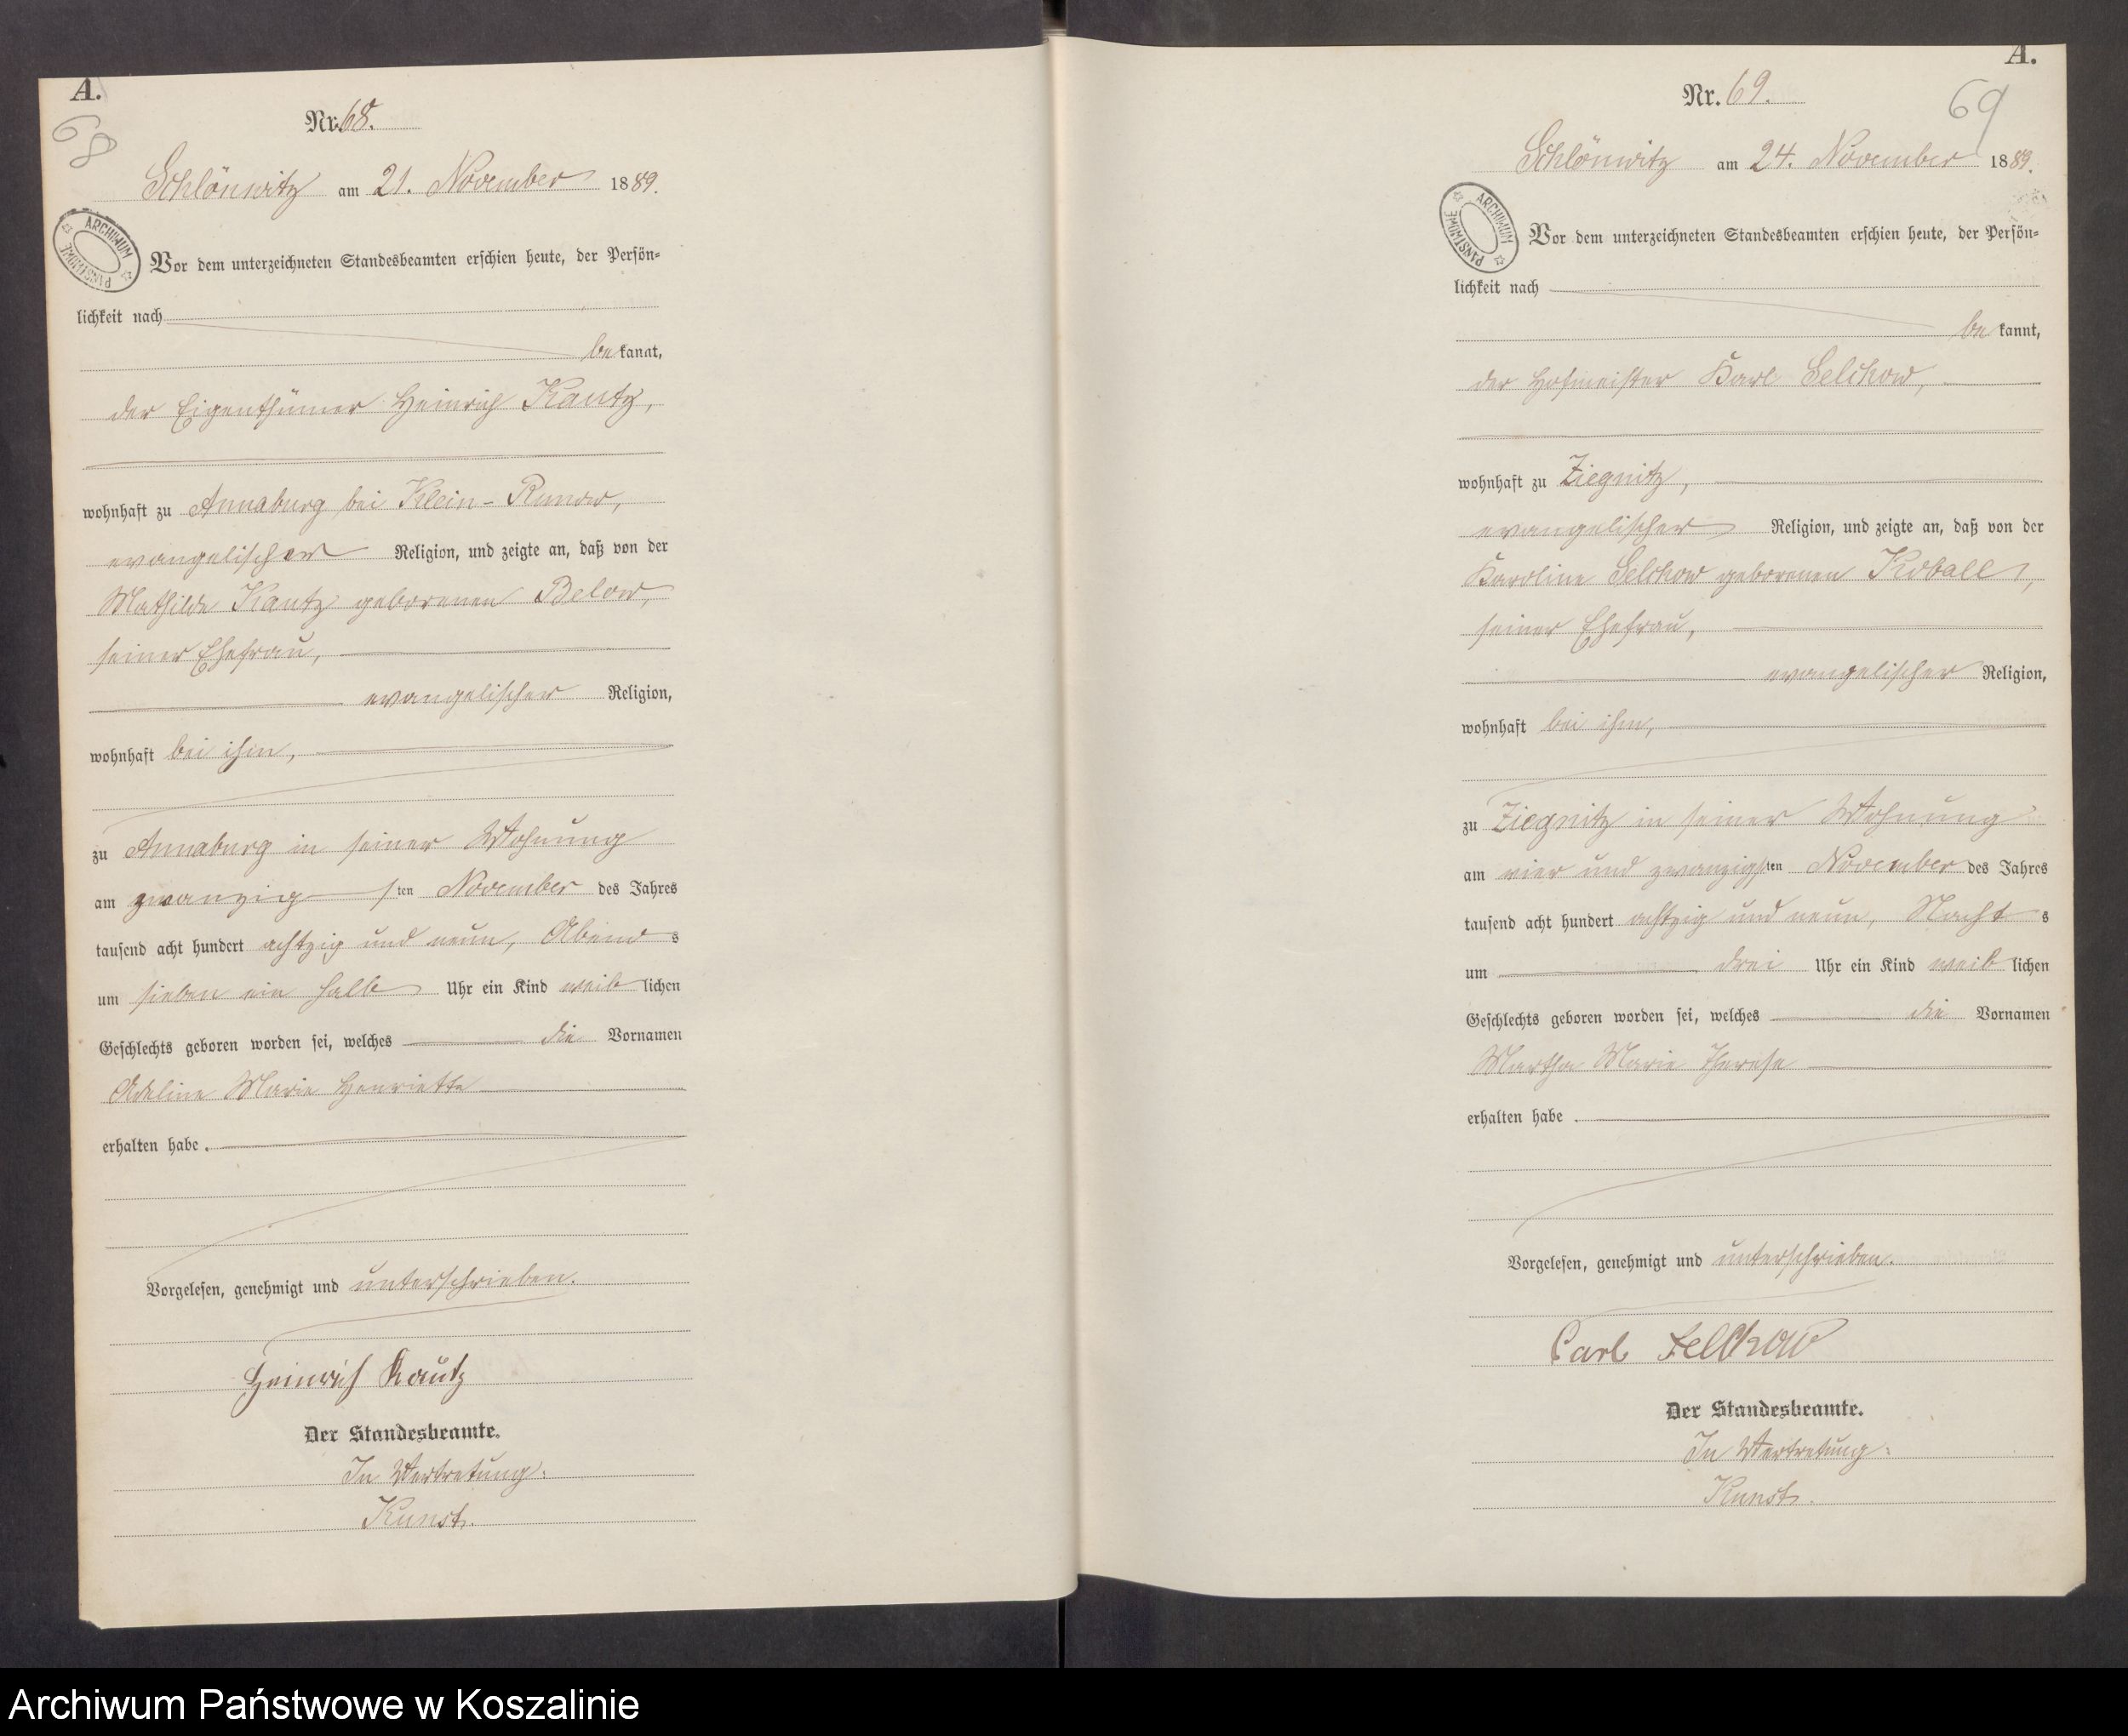 A.
68
Nr. 68.
Schlönwitz am 21. November 1889.
ARCHIWUM PAŃSTWOWE
Vor dem unterzeichneten Standesbeamten erschien heute, der Persön-
lichkeit nach
be kannt,
der Eigenthümer Heinrich Kautz,
wohnhaft zu Annaburg bei Klein-Runow,
evangelischer Religion, und zeigte an, daß von der
Mathilde Kautz geborenen Below,
seiner Ehefrau,
evangelischer Religion,
wohnhaft bei ihm,
zu Annaburg in seiner Wohnung
am zwanzig sten November des Jahres
tausend acht hundert achtzig und neun, Abend s
um sieben ein halb Uhr ein Kind weib lichen
Geschlechts geboren worden sei, welches die Vornamen
Adeline Marie Henriette
erhalten habe.
Vorgelesen, genehmigt und unterschrieben.
Heinrich Kautz
Der Standesbeamte.
In Vertretung:
Kunst.
A.
69
Nr. 69.
Schlönwitz am 24. November 1889.
ARCHIWUM PAŃSTWOWE
Vor dem unterzeichneten Standesbeamten erschien heute, der Persön-
lichkeit nach
be kannt,
der Hofmeister Karl Selchow,
wohnhaft zu Ziegnitz,
evangelischer Religion, und zeigte an, daß von der
Karoline Selchow geborenen Koball,
seiner Ehefrau,
evangelischer Religion,
wohnhaft bei ihm,
zu Ziegnitz in seiner Wohnung
am vier und zwanzigsten November des Jahres
tausend acht hundert achtzig und neun, Nacht s
um drei Uhr ein Kind weib lichen
Geschlechts geboren worden sei, welches die Vornamen
Martha Marie Therese
erhalten habe.
Vorgelesen, genehmigt und unterschrieben.
Carl Selchow
Der Standesbeamte.
In Vertretung:
Kunst.
Archiwum Państwowe w Koszalinie